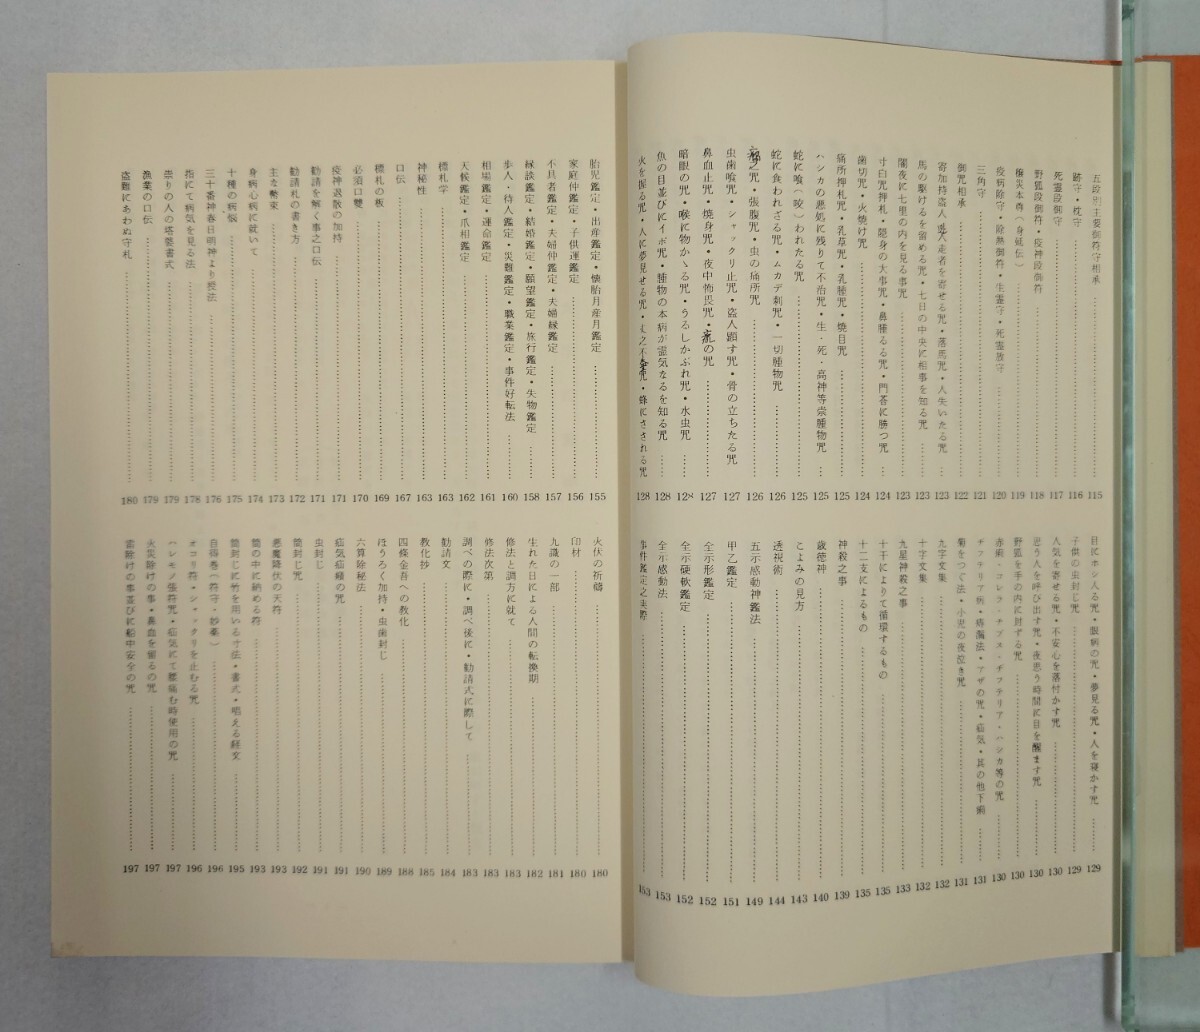 五段別主要御符守相承 115
跡守・枕守 116
死霊段御守 117
野狐段御符・疫神段御符 118
119
疫病除守・除無御符・生霊守・死霊放守 120
三角守 121
御咒相承 122
寄加持盗人 走者を寄せる咒・落馬咒・人失いたる咒 123
馬の駆けるを留める咒・七日の中央に相事を知る咒 123
闇夜に七里の内を見る事咒 123
寸白咒押札・隠身の大事咒・鼻腫るる咒・門答に勝つ咒 124
歯切咒・火焼け咒 124
痛所押札咒・乳草咒・乳腫咒・焼目咒 125
ハシカの悪処に残りて不治咒・生・死・高神等崇腫物咒 125
蛇に喰(咬)われたる咒 125
蛇に食われざる咒・ムカデ刺咒・一切腫物咒 126
之咒・張腹咒・虫の痛所咒 126
虫歯喰咒・シャックリ止咒・盗人顕す咒・骨の立ちたる咒 127
鼻血止咒・焼身咒・夜中怖畏咒・ の咒 127
暗眼の咒・喉に物かゝる咒・うるしかぶれ咒・水虫咒 128
魚の目並びにイボ咒・腫物の本病が霊気なるを知る咒 128
火を握る咒・人に夢見せる咒・ 咒・蜂にさされる咒 128
目にホシ入る咒・眼病の咒・夢見る咒・人を寝かす咒 129
子供の虫封じ咒 129
人気を寄せる咒・不安心を落付かす咒 130
思う人を呼び出す咒・夜思う時間に目を醒ます咒 130
野狐を手の内に封ずる咒 130
赤痢・コレラ・チブス・ヂフテリア・ハシカ等の咒 130
ヂフテリア病・痔漏法・アザの咒・疝気・其の他下痢 131
菊をつぐ法・小児の夜泣き咒 131
九字文集 132
十字文集 132
九星神殺之事 133
十干によりて循環するもの 135
十二支によるもの 135
神殺之事 139
歳徳神 140
こよみの見方 143
透視術 144
五示感動神鑑法 149
甲乙鑑定 151
全示形鑑定 152
全示硬軟鑑定 152
全示感動法 153
事件鑑定之実際 153
胎児鑑定・出産鑑定・懐胎月産月鑑定 155
家庭仲鑑定・子供運鑑定 156
不具者鑑定・夫婦仲鑑定・夫婦縁鑑定 157
縁談鑑定・結婚鑑定・願望鑑定・旅行鑑定・失物鑑定 158
歩人・待人鑑定・災難鑑定・職業鑑定・事件好転法 160
相場鑑定・運命鑑定 161
天候鑑定・爪相鑑定 162
標札学 163
神秘性 163
口伝 167
標札の板 169
必須口雙 170
疫神退散の加持 171
勧請を解く事之口伝 171
勧請札の書き方 172
主な 173
身病心病に就いて 174
十種の病悩 175
三十番神春日明神より授法 176
指にて病気を見る法 178
祟りの人の塔婆書式 179
漁業の口伝 179
盗難にあわぬ守札 180
火伏の祈祷 180
印材 180
九識の一部 181
生れた日による人間の転換期 182
修法と調方に就て 183
修法次第 183
調べの際に・調べ後に・勧請式に際して 183
勧請文 184
教化抄 185
四條金吾への教化 188
ほうろく加持・虫歯封じ 189
六算除秘法 190
疝気疝癪の咒 191
虫封じ 191
筒封じ咒 192
悪魔降伏の天符 193
筒の中に納める符 193
筒封じに竹を用いる寸法・書式・唱える経文 195
自得巻(符守・妙薬) 196
オコリ符・シャックリを止むる咒 196
ハシモノ張符咒・疝気にて腰痛む時使用の咒 197
火災除けの事・鼻血を留るの咒 197
雷除けの事並びに船中安全の咒 197